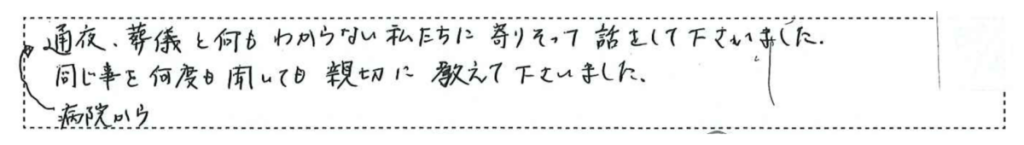 通夜、葬儀と何もわからない私たちに寄りそって話をして下さいました.
同じ事を何度も聞いても親切に教えて下さいました.
病院から